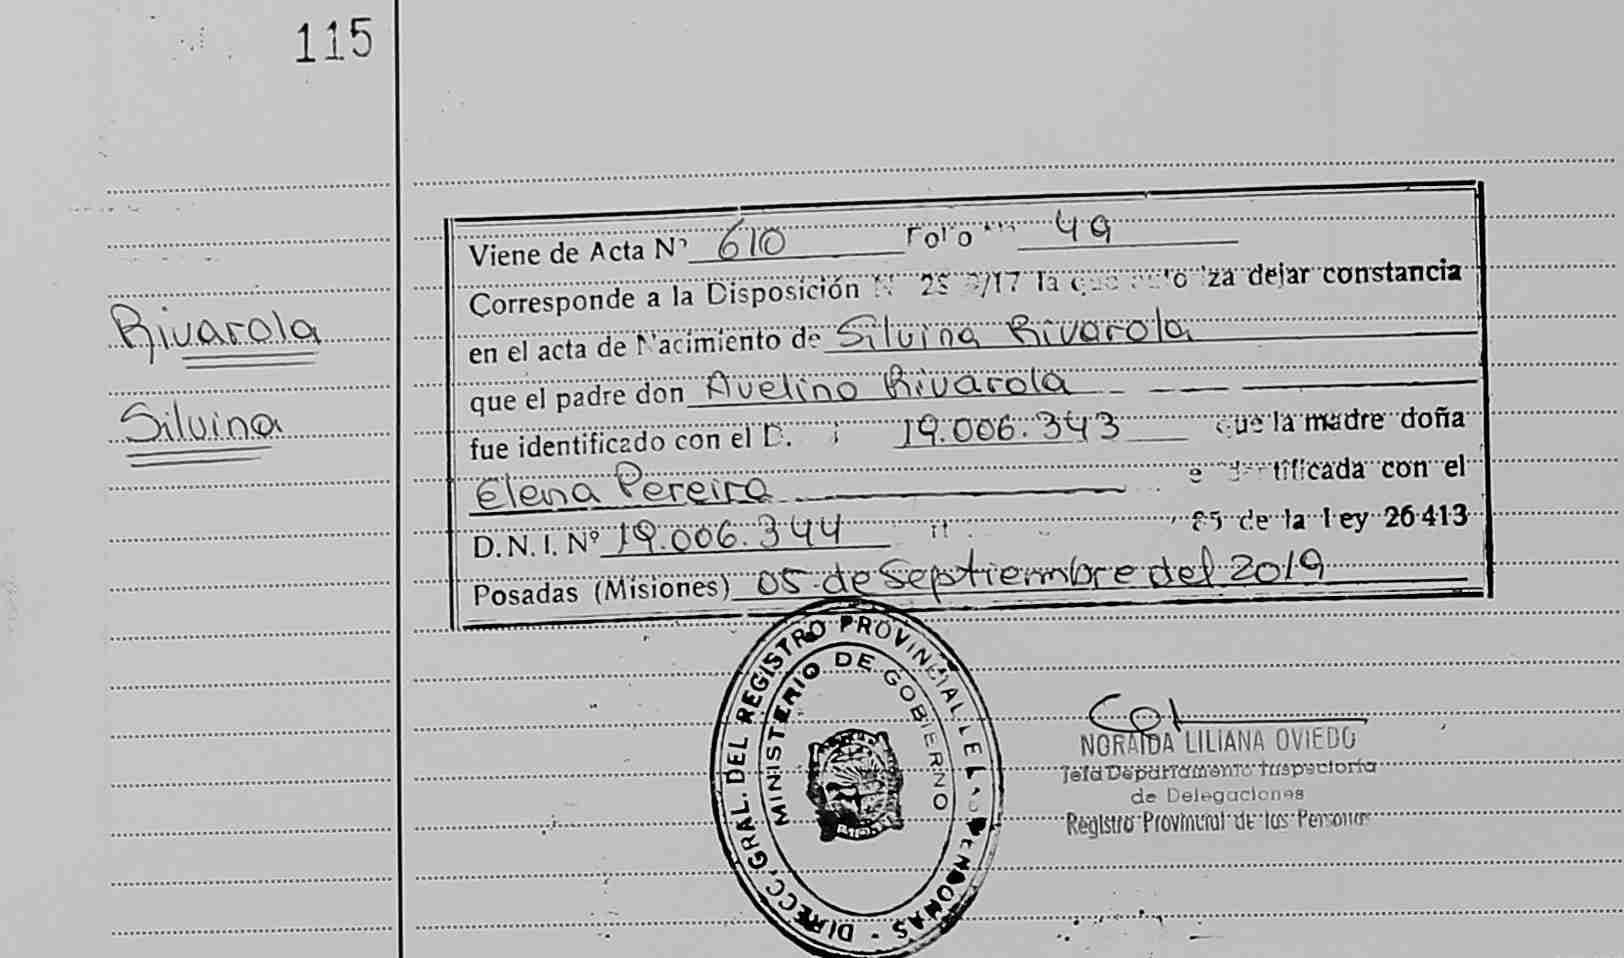 115
Viene de Acta Nº 610 Folo 49
Corresponde a la Disposición /17 la dejar constancia
Rivarola
en el acta de Nacimiento de Silvina Rivarola
que el padre don Avelino Rivarola
Silvina
fue identificado con el D. 19.006.343 que la madre doña
Elena Pereira tificada con el
D.N.I. Nº 19.006.344 85 de la Ley 26413
Posadas (Misiones) 05 de Septiembre del 2019
DIRECC. GRAL. DEL REGISTRO PROVINCIAL
MINISTERIO DE GOBIERNO
NORAIDA LILIANA OVIEDO
Jefa Departamento Inspectoría
de Delegaciones
Registro Provincial de las Personas